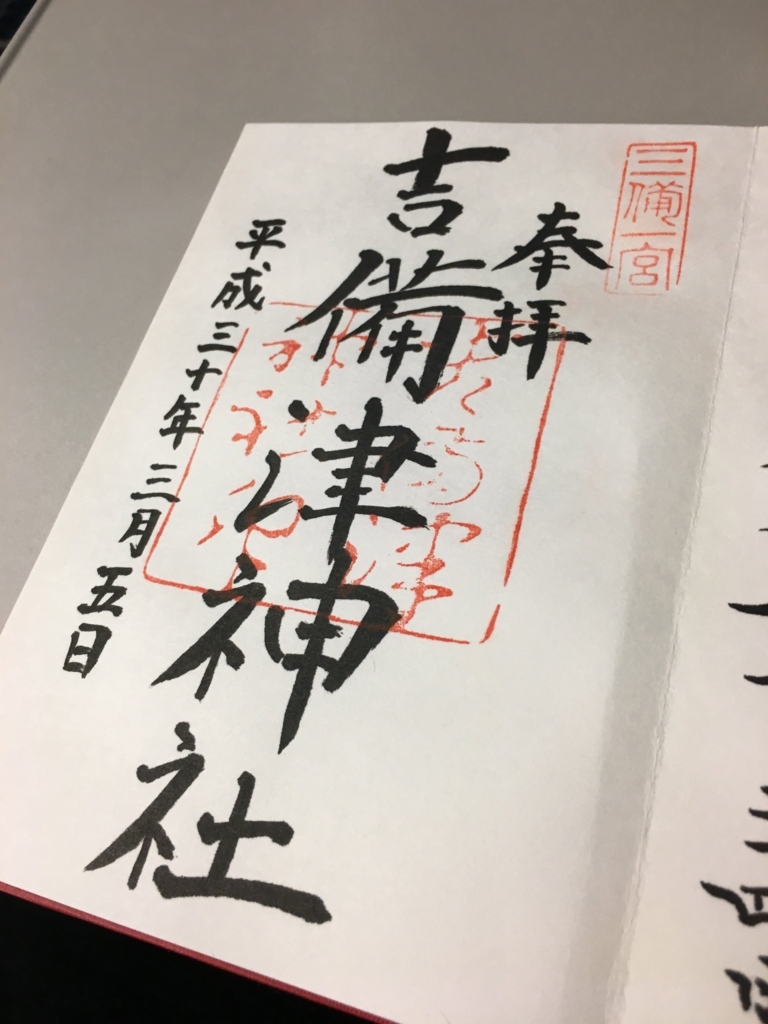 三備一宮
奉拝
吉備津神社
平成三十年三月五日